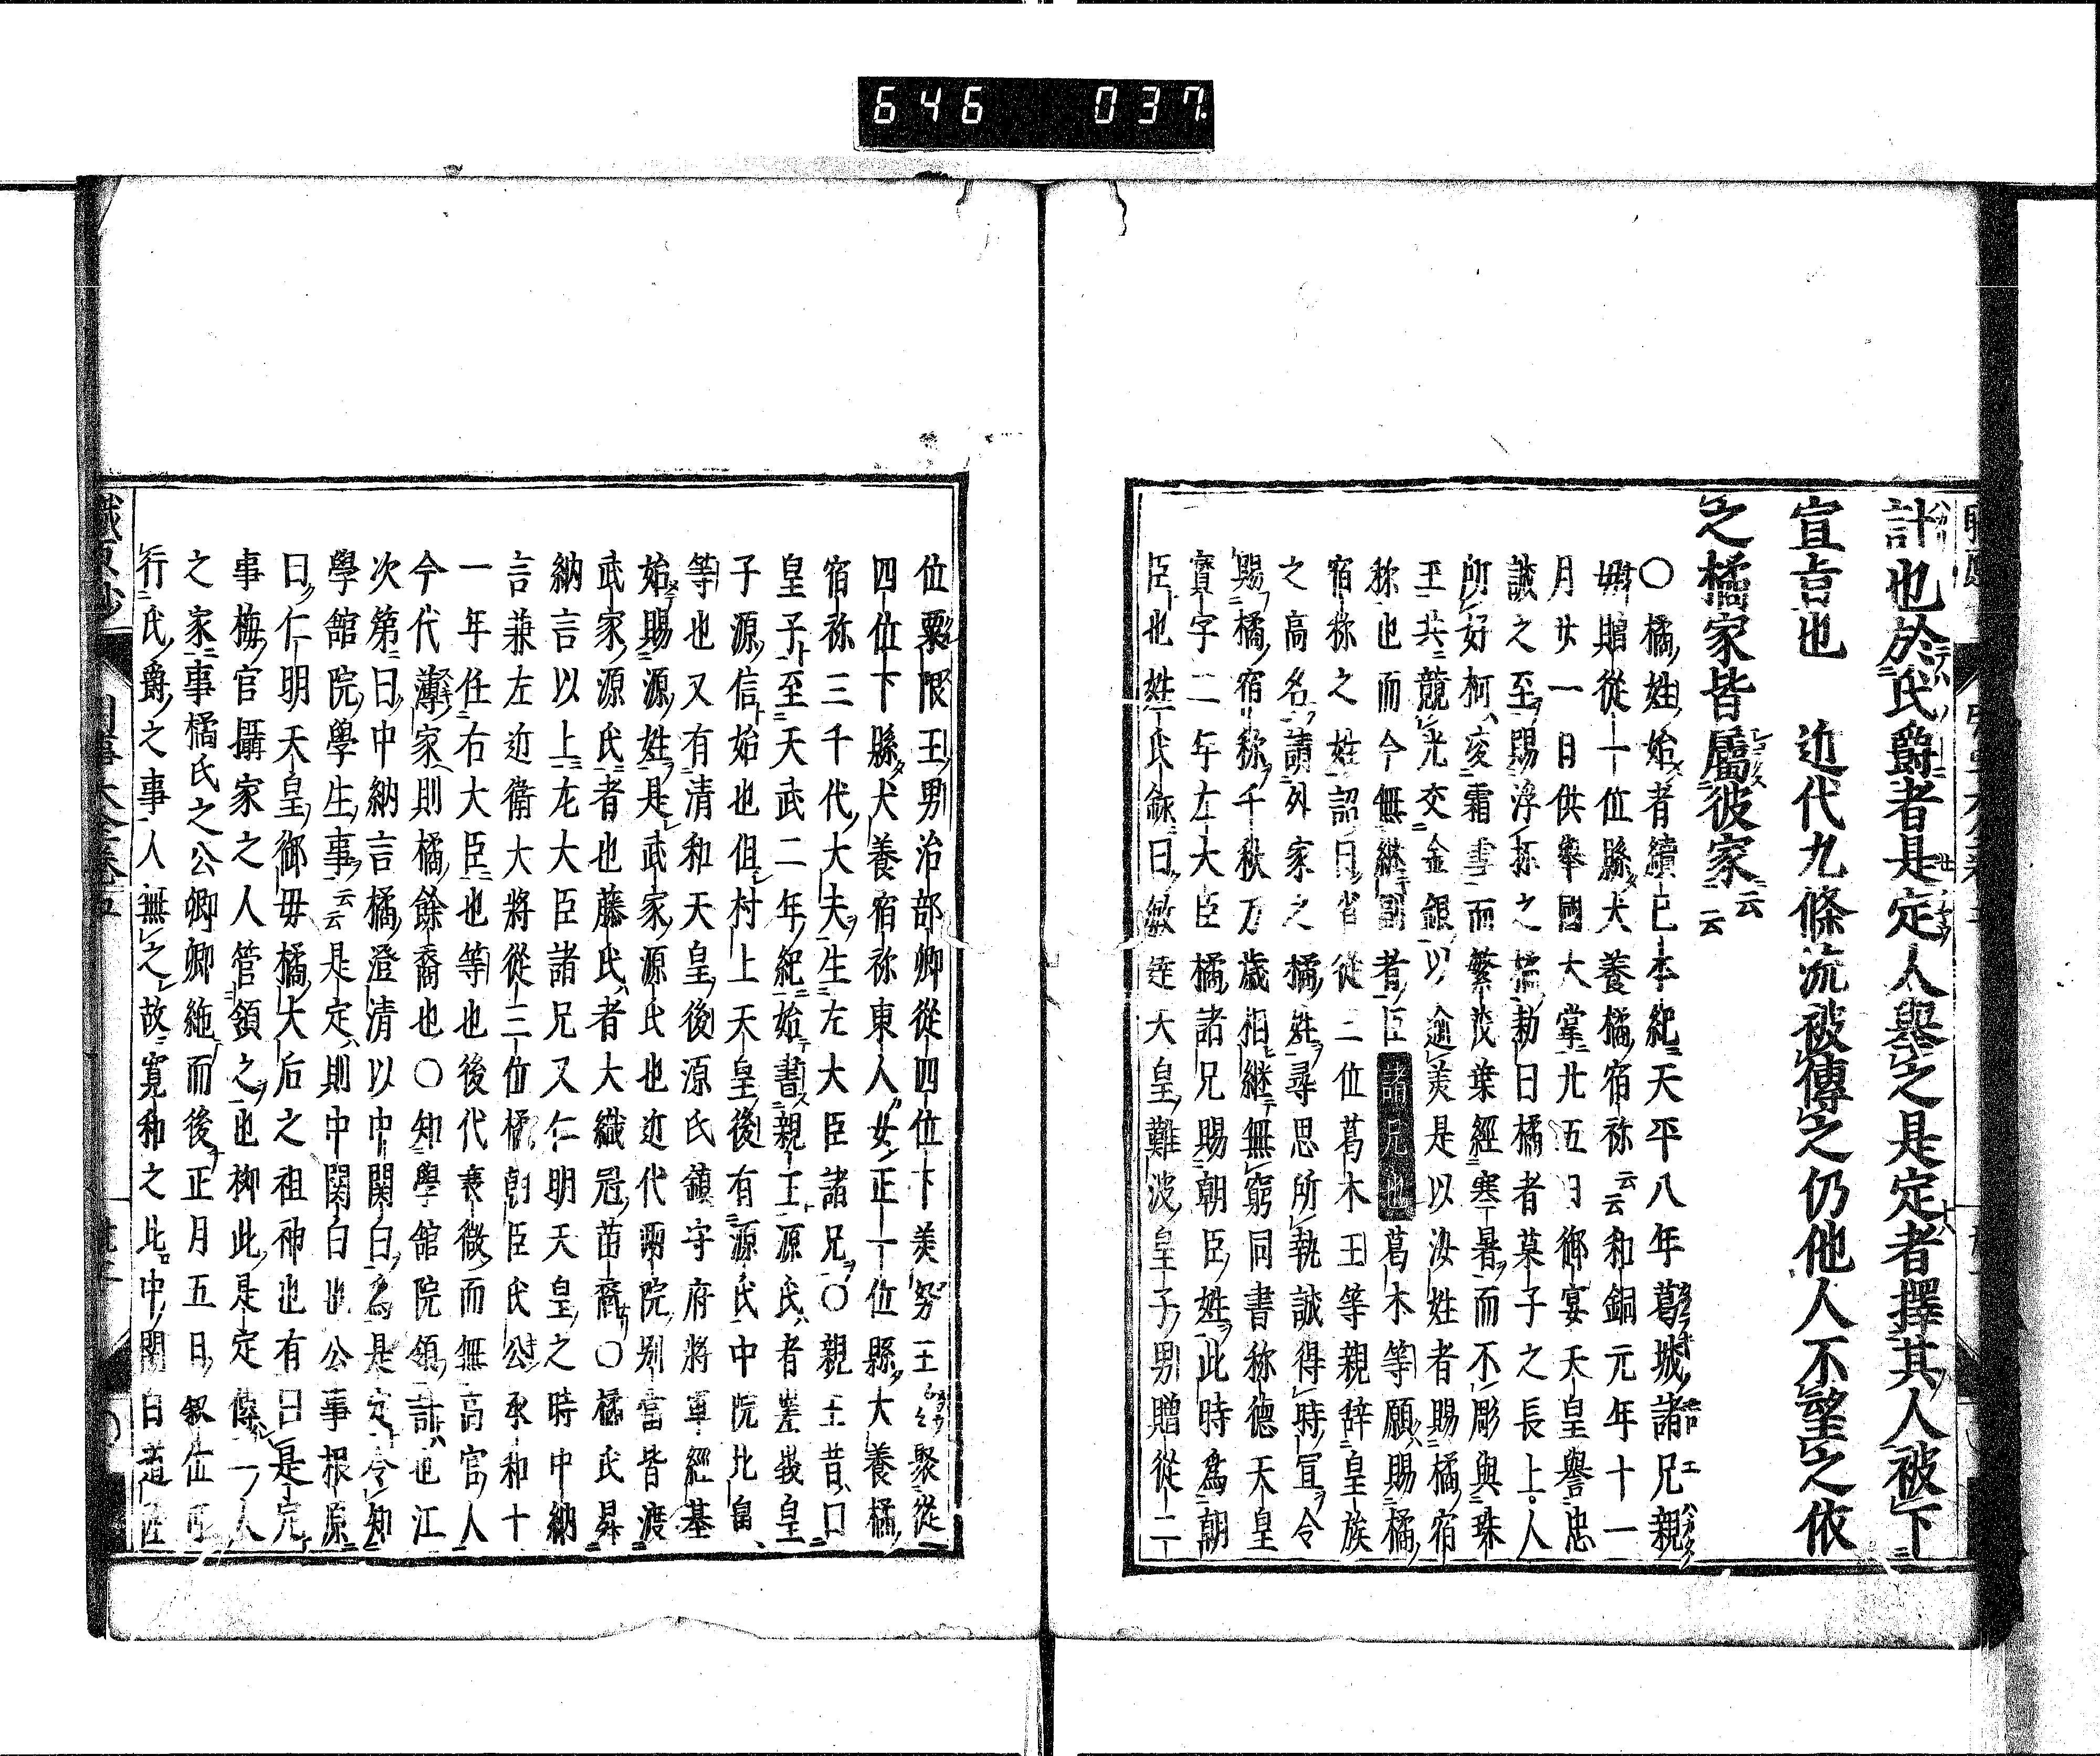 646 037
計也於氏爵者是定人舉之是定者擇其人被下
宣旨也 近代九條流被傳之仍他人不望之依
之橘家皆屬彼家云云
〇橘姓始者續日本紀天平八年葛城諸兄王親
母贈從一位縣犬養橘宿祢云云和銅元年十一
月廿一日供舉國大掌廿五日御宴天皇譽忠
誠之至賜浮杯之橘勅曰橘者菓子之長上人
所好柯凌霜雪而繁茂葉經寒暑而不彫與珠
玉共競光交金銀以逾美是以汝姓者賜橘宿
祢也而今無継嗣者臣諸兄也葛木等願賜橘
宿祢之姓詔曰省從三位葛木王等親辞皇族
之高名請外家之橘姓尋思所執誠得時宜令
賜橘宿祢千秋万歳相継無窮同書称德天皇
寳字二年左大臣橘諸兄賜朝臣姓此時為朝
臣也姓氏録曰敏達天皇難波皇子男贈從二
位栗隈王男治部卿從四位下美努王聚從
四位下縣犬養宿祢東人女正一位縣犬養橘
宿祢三千代大夫生左大臣諸兄〇親王昔口
皇子至天武二年紀始書親王源氏者嵯峩皇
子源信始也但村上天皇後有源氏中院北畠
等也又有清和天皇後源氏鎮守府將軍經基
始賜源姓是武家源氏也近代兩院別當皆渡
武家源氏者也藤氏者大織冠苗裔〇橘氏昇
納言以上左大臣諸兄又仁明天皇之時中納
言兼左近衛大將從三位橘朝臣氏公承和十
一年任右大臣也等也後代衰微而無高官人
今代薄家則橘餘裔也〇知學館院領計也江
次第曰中納言橘澄清以中関白為是定令知
學館院學生事云云是定則中関白也公事根源
曰仁明天皇御母橘大后之祖神也有曰是定
事梅官攝家之人管領之也抑此是定條一人
之家事橘氏之公卿卿絶而後正月五日叙位可
行氏爵之事人無之故寛和之比中関白道隆